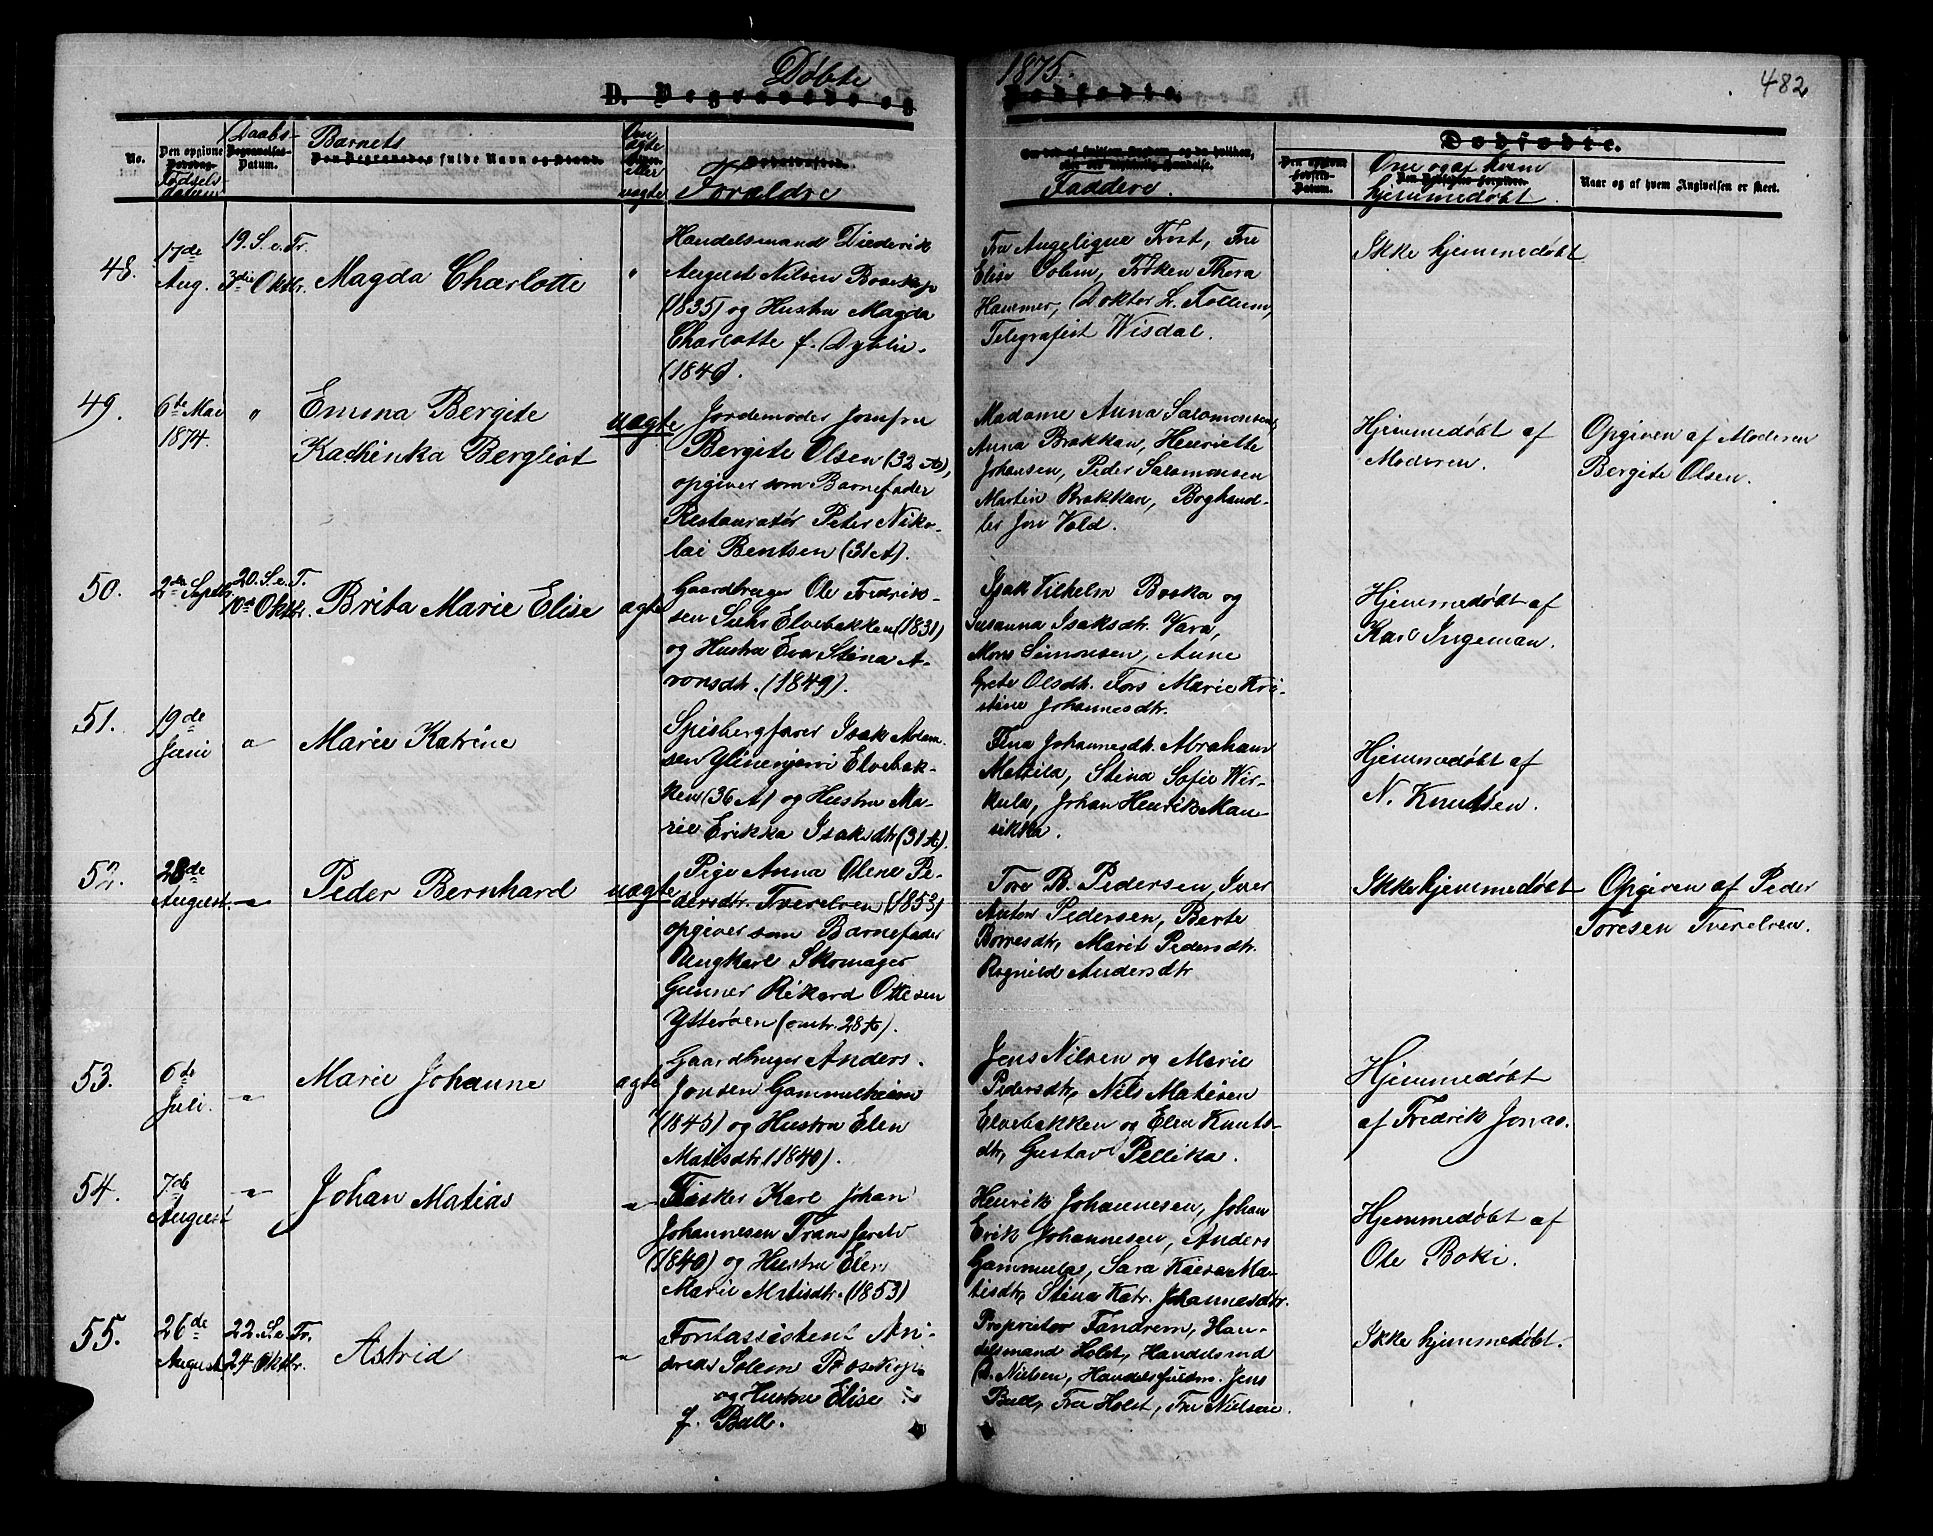 Døbte
1875.
482
D. Begravede og
Dødfødte.
No.
Den opgivne Dødsdag
Fødsels-
datum
Daabs-
Begravelses-
Datum.
Barnets
Den Begravedes fulde Navn og Stand.
Om
ægte
eller
uægte
Forældre
Faddere.
Dødfødte.
Den opgivne
Fødsels-
Datum.
Om og af hvem
hjemmedøbt.
Naar og af hvem Angivelsen er skeet.
48.
17de
Aug.
19. S. e. Tr.
3die Oktbr.
Magda Charlotte
"
Handelsmand Diederik
August Nilsen Bosekop
(1835) og Hustru Magda
Charlotte f. Dyblie.
(1846).
Fru Angelique Frost, Fru
Elise Solem, Frøken Thora
Hammer, Doktor L. Follum,
Telegrafist Wisdal.
Ikke hjemmedøbt
49.
6te Mai
1874.
"
Emma Bergite
Kathinka Bergliot
uægte
Jordemoder Jomfru
Bergite Olsen (32 A),
opgiver som Barnefader
Restauratør Peter Niko-
lai Bentsen (31 A).
Madame Anna Salomonsen,
Anna Brakkan, Henriette
Johansen, Peder Salomonsen
Martin Brakkan, Boghand-
ler Jon Vold.
Hjemmedøbt af
Moderen.
Opgiven af Moderen
Bergite Olsen.
50.
2den Septbr.
20. S. e. T.
10de Oktbr.
Brita Marie Elise
ægte
Gaardbruger Ole Fredrik-
sen Suhr Elvebakken (1831)
og Hustru Eva Stina A-
ronsdtr. (1849).
Isak Vilhelm Boska og
Susanna Isaksdtr. Vara,
Mons Simonsen, Anne
Grete Olsdtr. Fors Marie Kri-
stine Johannesdtr.
Hjemmedøbt af
Karl Ingeman.
51.
19de
Juni
"
Marie Katrine
Spisbergfarer Isak Adam-
sen Ylinenjarvi Elvebak-
ken (36 A) og Hustru Ma-
rie Erikka Isaksdtr (31 A).
Fina Johannesdtr. Abraham
Mattila, Stina Sofie Wis-
kula, Johan Henrik Man-
sikka.
Hjemmedøbt af
N. Knutsen.
52.
28de
August.
"
Peder Bernhard
uægte
Pige Anna Oline Pe-
dersdtr. Tverelven (1853)
opgiver som Barnefader
Ungkarl Skomager
Gunner Rikard Ottesen
Ytterøen (omtr. 28 A).
Tore B. Pedersen, Iver
Anton Pedersen, Berte
Borresdtr, Marit Pedersdtr.
Ragnild Andersdtr
Ikke hjemmedøbt
Opgiven af Peder
Toresen Tverelven.
53.
6te
Juli.
"
Marie Johanne
ægte
Gaardbruger Anders
Jonsen Gammelheim
(1845) og Hustru Elen
Matisdtr (1840).
Jens Nilsen og Marie
Pedersdtr, Nils Matisen
Elvebakken og Elen Knuts-
dtr, Gustav Pellika.
Hjemmedøbt
af Fredrik Jonas.
54.
7de
August
"
Johan Matias
"
Fisker Karl Johan
Johannesen Transfarelv
(1840) og Hustru Elen
Marie Matisdtr. (1853)
Henrik Johannesen, Johan
Erik Johannesen, Anders
Gammelas, Sara Kaisa Ma-
tisdtr, Stina Katr. Johannesdtr.
Hjemmedøbt af
Ole Boki.
55.
26de
August
22. S. e. Tr.
24 Oktbr.
Astrid
"
Forstassistent
Solem Bosekop
og Hustru Elise
f. Bull.
Proprietær Fandrem, Han-
delsmand Holst, Handelsmd
D. Nielsen, Handelsfuldm. Jens
Bull, Fru Holst, Fru Nielsen.
Ikke hjemmedøbt.